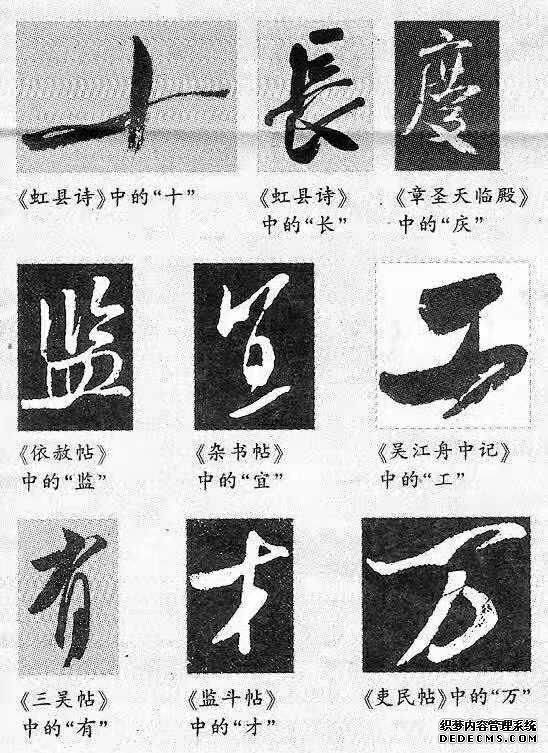 十 長 慶
《虹县诗》中的“十” 《虹县诗》 《章圣天临殿》
中的“长” 中的“庆”
监 宜 工
《依赦帖》 《杂书帖》 《吴江舟中记》
中的“监” 中的“宜” 中的“工”
有 才 万
《三吴帖》 《监斗帖》 《吏民帖》中的“万”
中的“有” 中的“才”
织梦内容管理系统
DEDECMS.COM